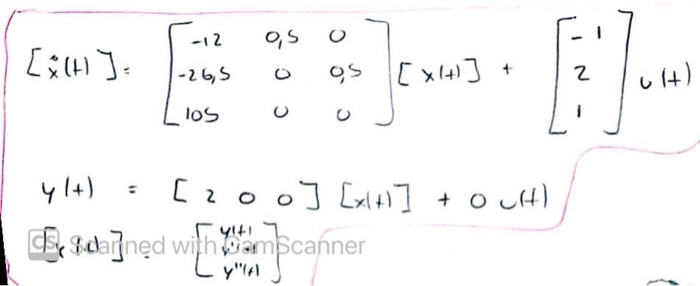 [ẋ(t)] = [-12 0,5 0 -26,5 0 0,5 105 0 0] [x(t)] + [-1 2 1] u(t)
y(t) = [2 0 0] [x(t)] + 0 u(t)
= [y(t) y''(t)]
CS Scanned with CamScanner